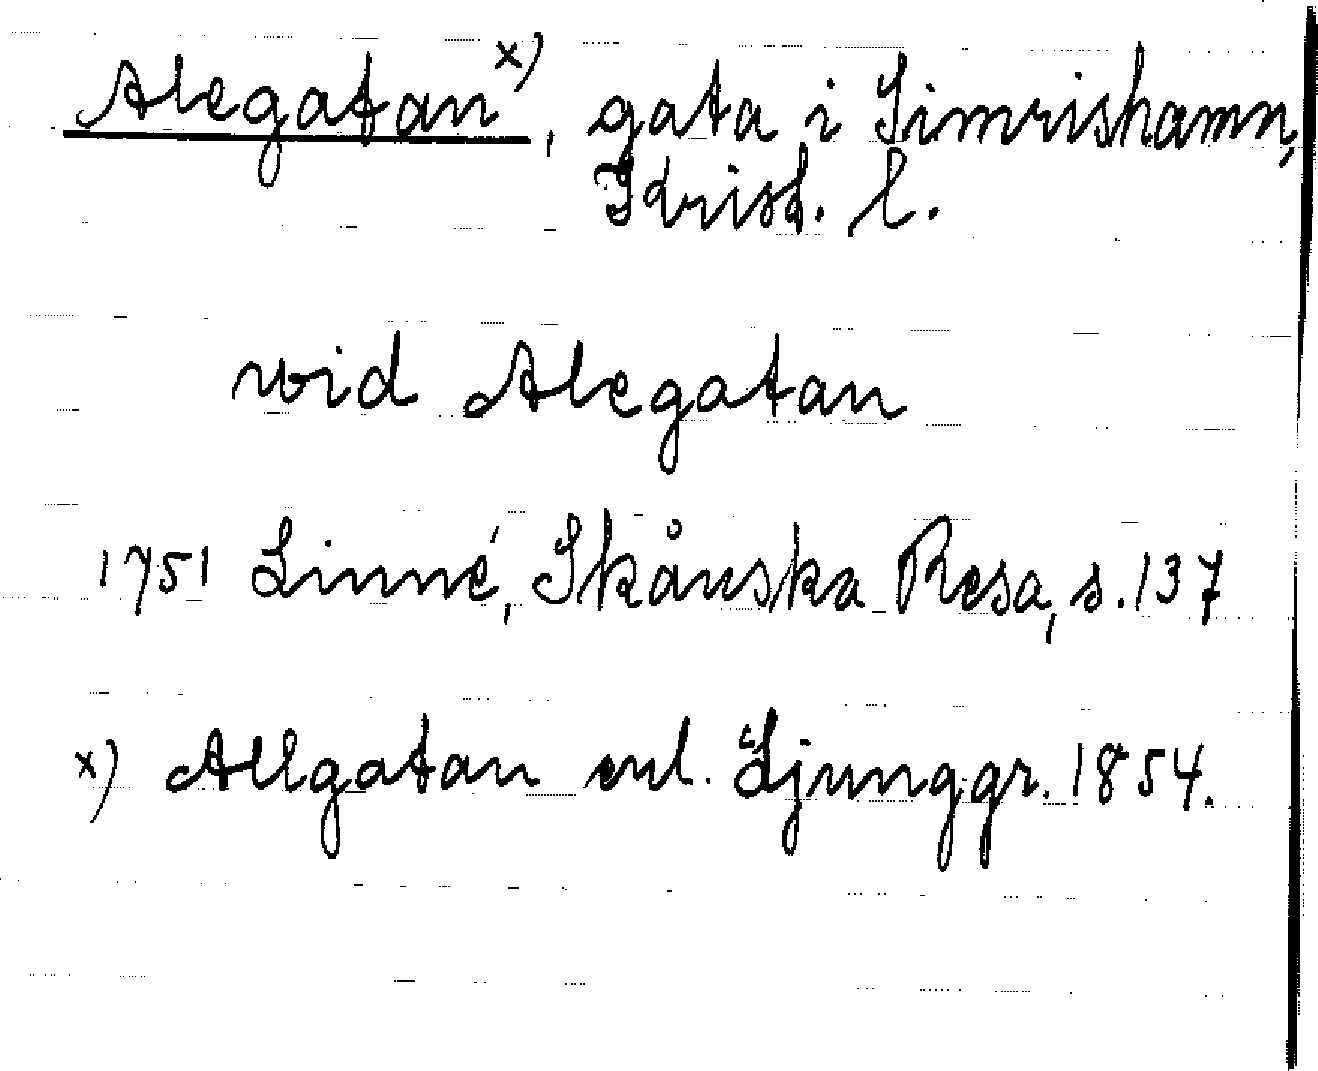 Alegatan x), gata i Simrishamn,
Krist. l.
wid Alegatan
1751 Linné, Skånska Resa, s. 137
x) Allgatan enl. Ljunggr. 1854.